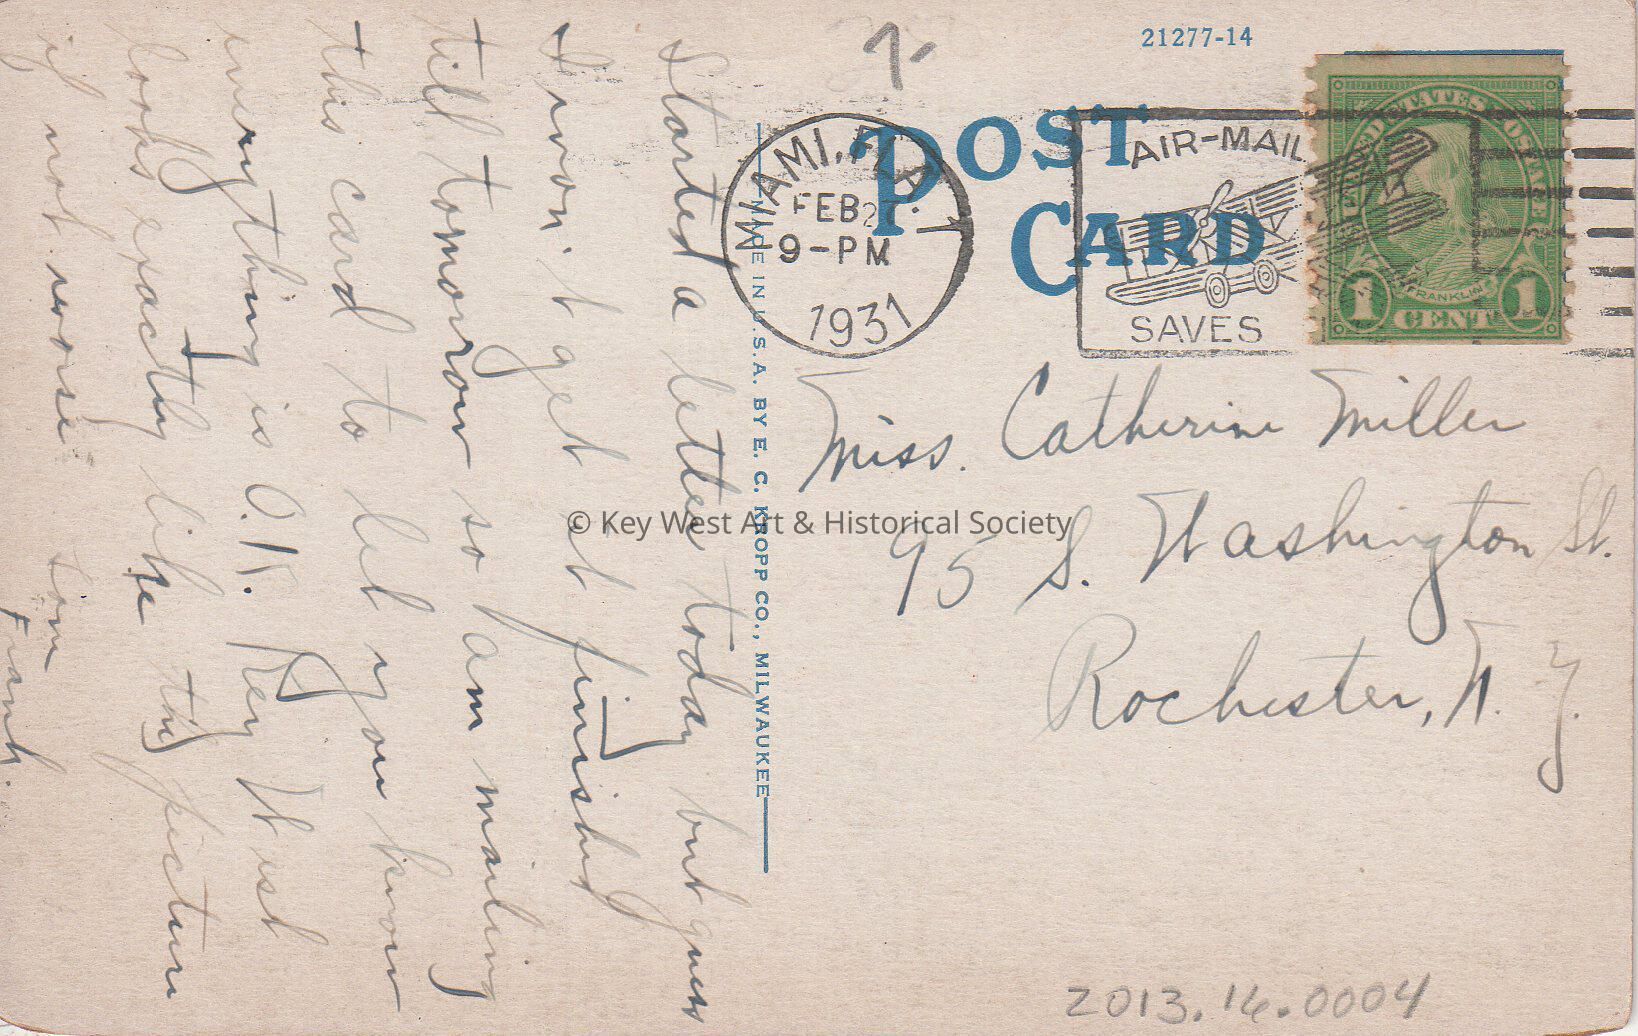 21277-14
POST CARD
MIAMI, FLA.
FEB 2
9-PM
1931
AIR-MAIL
SAVES
UNITED STATES POSTAGE
FRANKLIN
1 CENT 1
Miss. Catherine Miller
95 S. Washington St.
Rochester, N. Y.
Started a letter today but guess
I won't get it finished
till tomorrow so am mailing
this card to let you know
everything is O.K. Key West
looks exactly like this picture
if not worse
Frank.
MADE IN U.S.A. BY E. C. KROPP CO., MILWAUKEE
© Key West Art & Historical Society
2013.16.0004